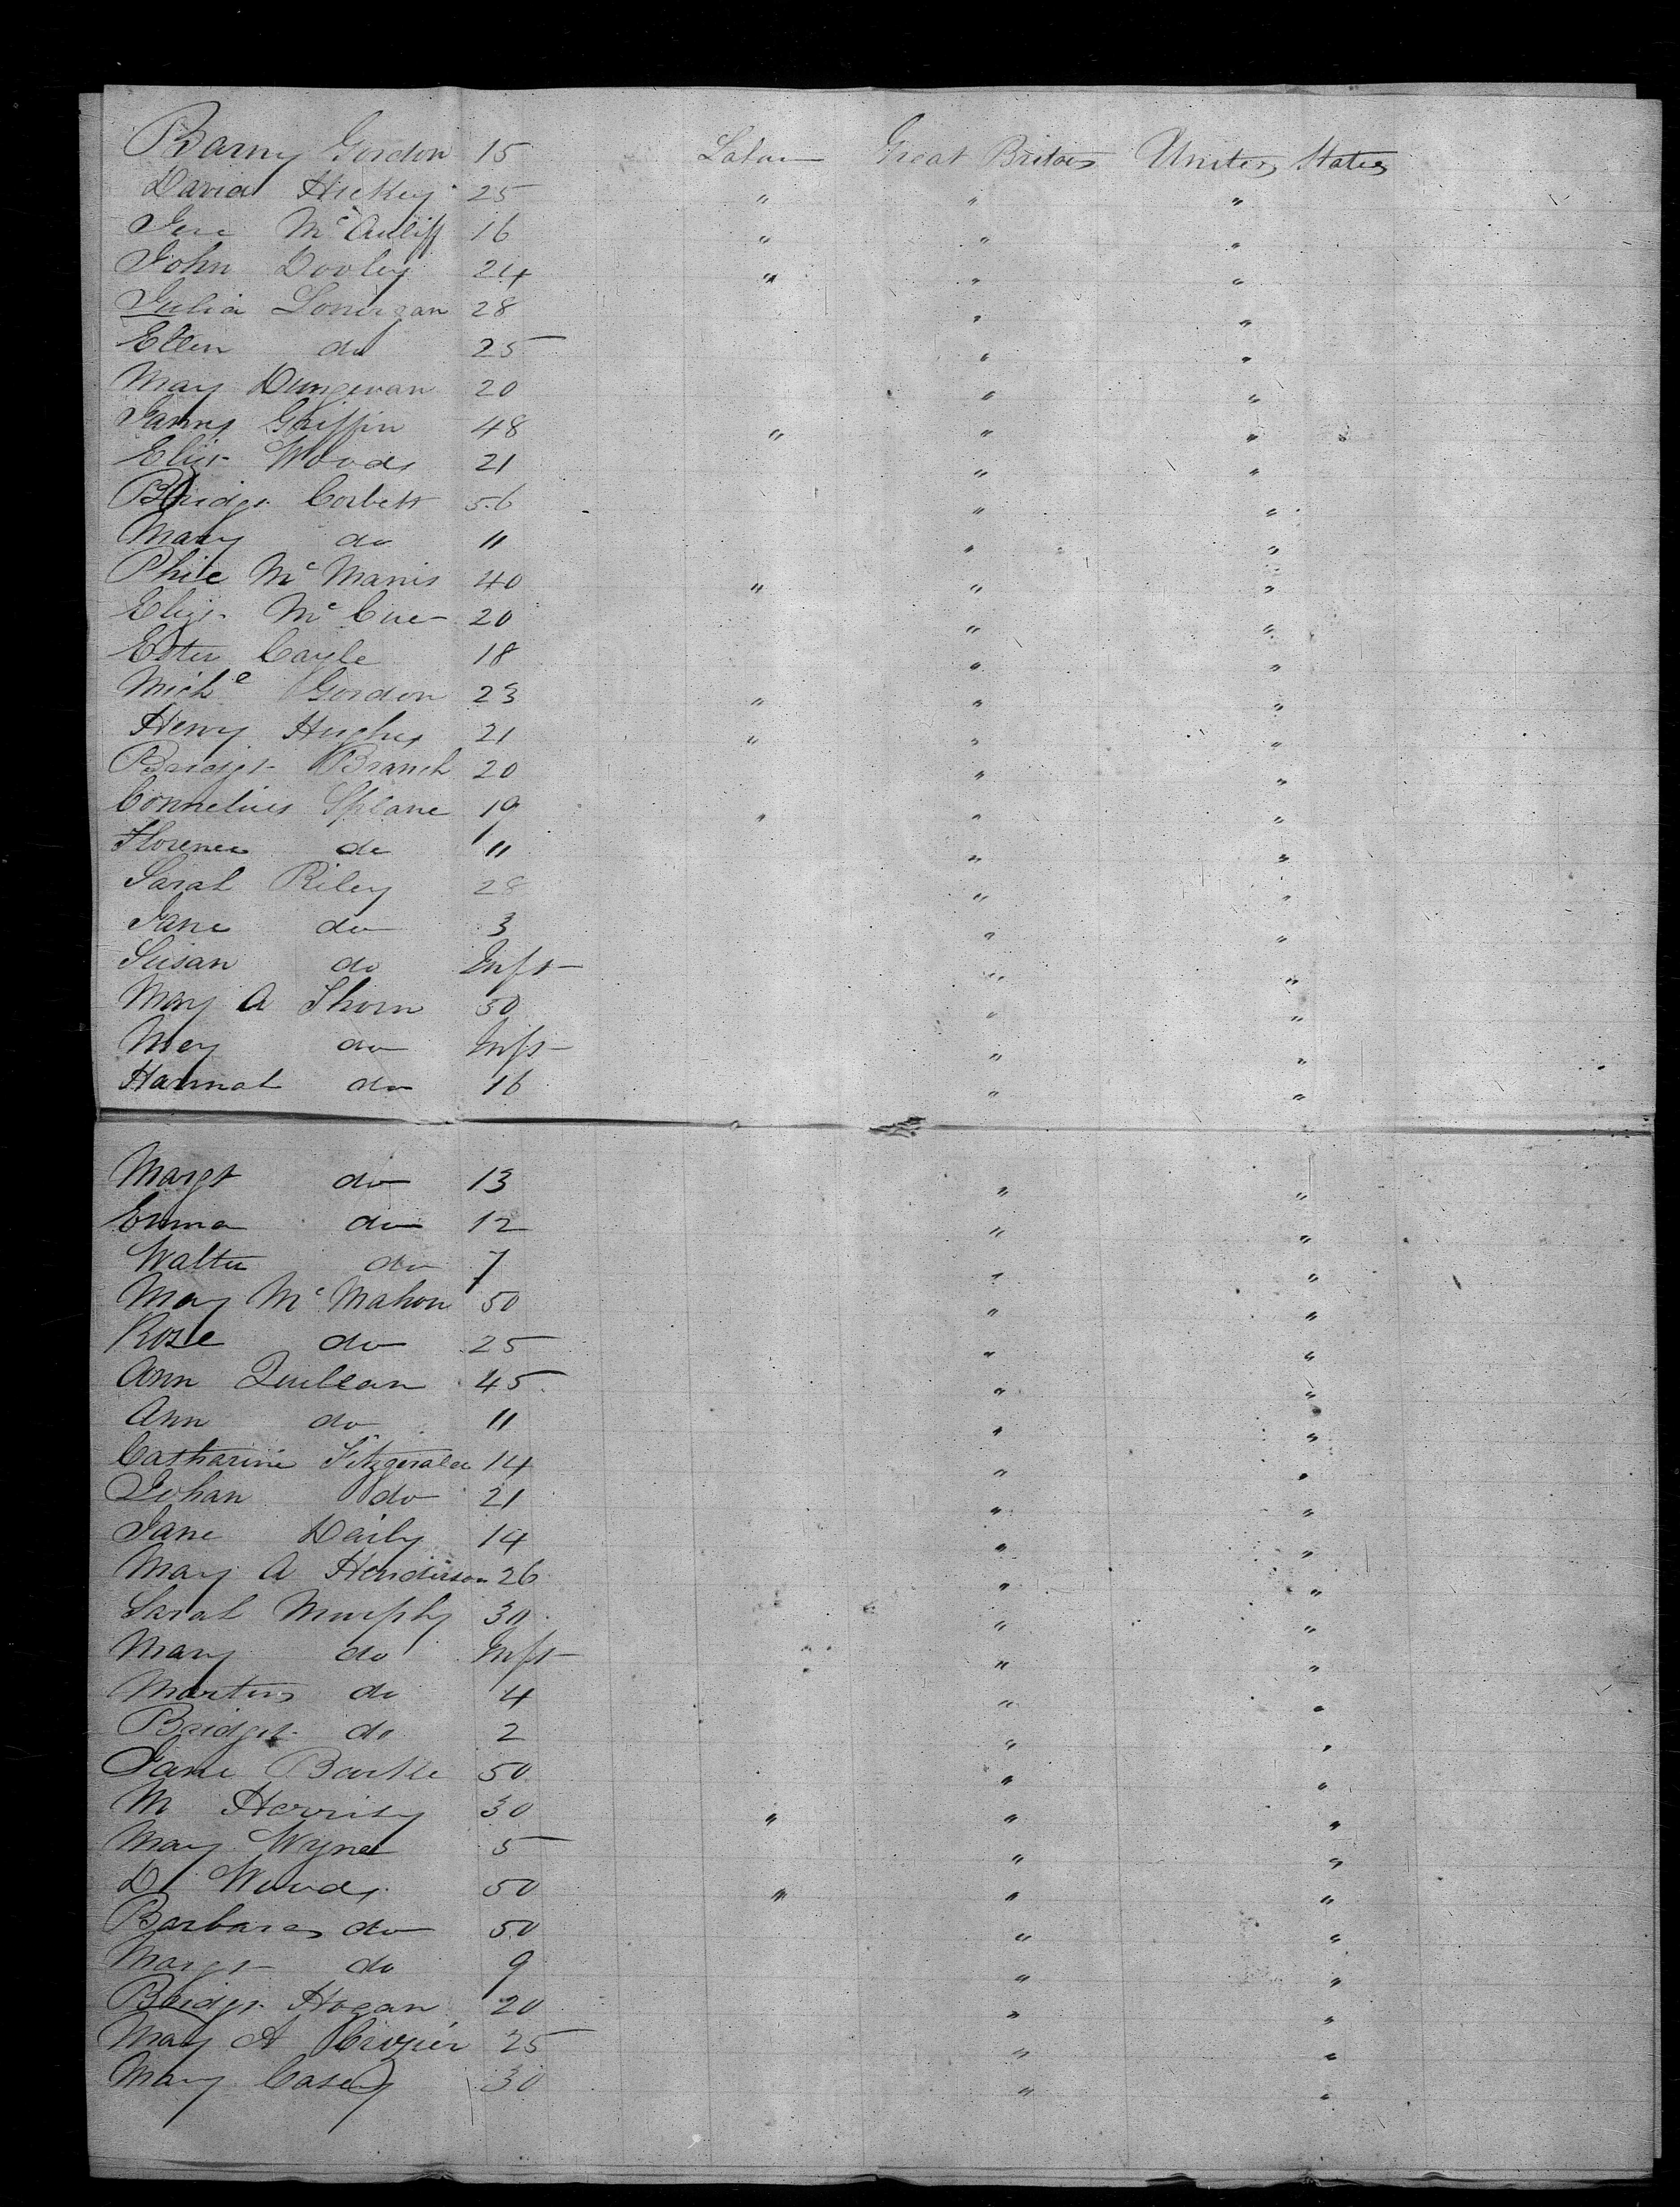 Barny Gordon 15 Labor Great Britain United States
David Hickey 25 " " "
Jere McAuliff 16 " " "
John Dooley 24 " " "
Julia Lonergan 28 " "
Ellen do 25 " "
Mary Dungevan 20 " "
Griffin 48 " " "
Eliz Woods 21 " "
Bridgt Corbett 56 " "
Mary do 11 " "
Phil McManis 40 " " "
Eliza McCue 20 " "
Ester Cayle 18 " "
Michl Gordon 23 " " "
Henry Hughes 21 " " "
Bridgt Branch 20 " "
Connelius Splane 19 " " "
Florence do 11 " "
Sarah Riley 28 " "
Jane do 3 " "
Susan do Inft " "
Mary A Thorn 50 " "
Mary do Inft " "
Hannah do 16 " "
Margt do 13 " "
Emma do 12 " "
Walter do 7 " "
Mary McMahon 50 " "
Rose do 25 " "
Ann Quillan 45 " "
Ann do 11 " "
Catharine Fitzgerald 14 " "
Johan do 21 " "
Jane Daily 14 " "
Mary A Henderson 26 " "
Sarah Murphy 30 " "
Mary do Inft " "
Martin do 4 " "
Bridget do 2 " "
Jane 50 " "
M 30 " " "
Mary Wynet 5 " "
D Woods 50 " " "
Barbara do 50 " "
Margt do 9 " "
Bridgt Hogan 20 " "
Mary A Crozier 25 " "
Mary Casey 30 " "